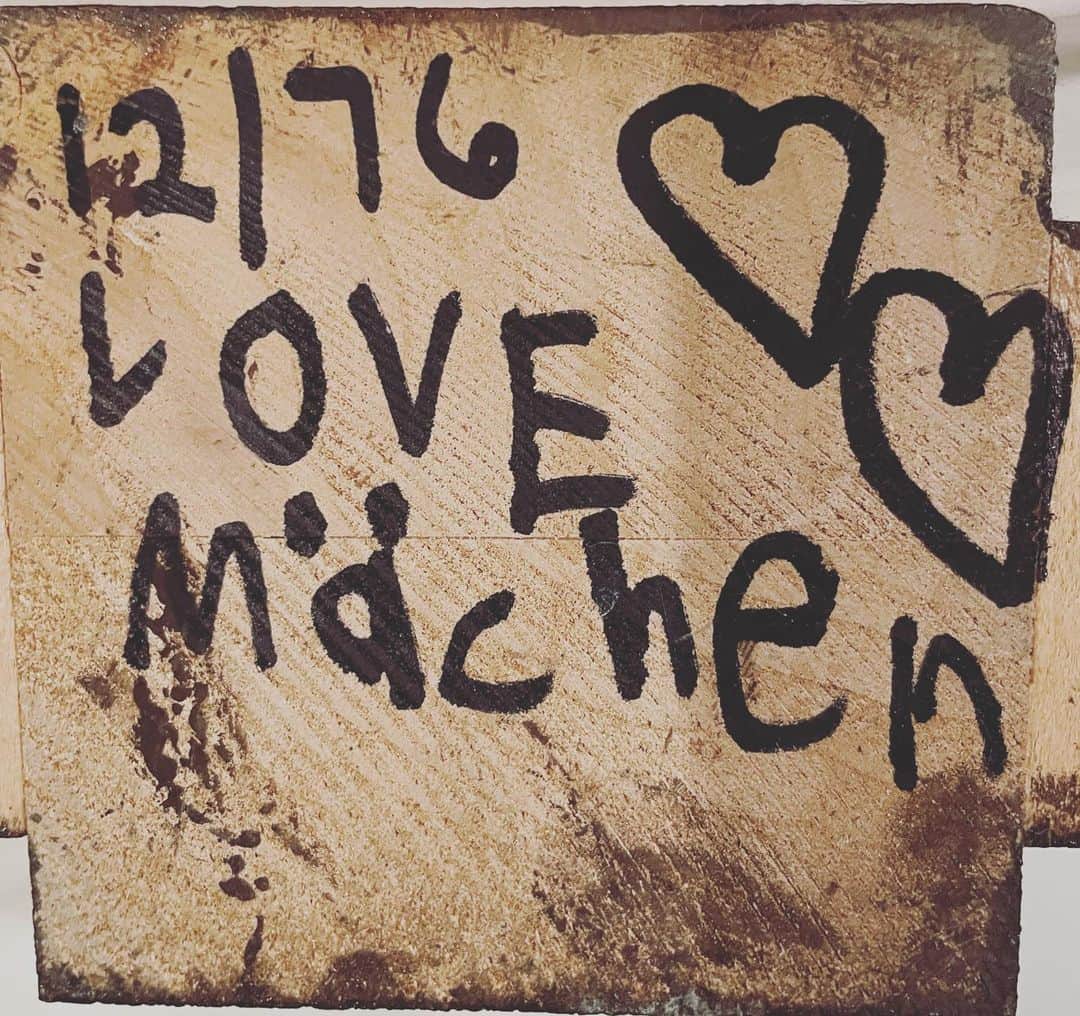 12/76
LOVE
Mächen